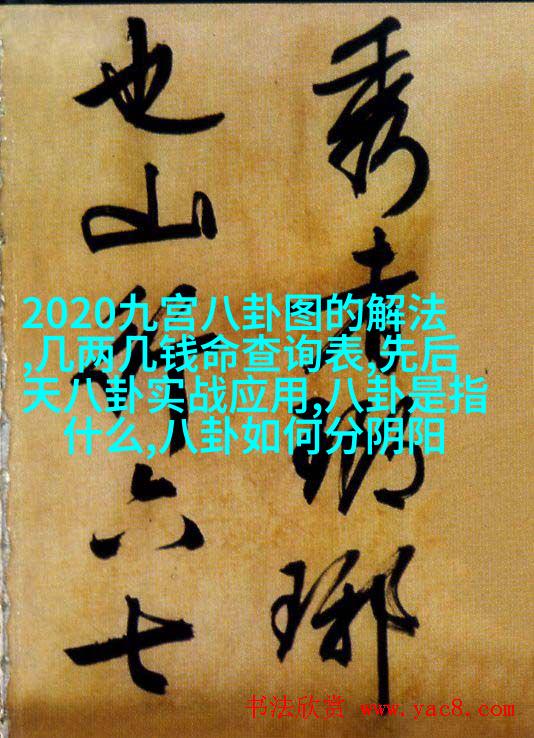 秀者瑯琊
也山行六七
2020九宫八卦图的解法
,几两几钱命查询表,先后
天八卦实战应用,八卦是指
什么,八卦如何分阴阳
书法欣赏 www.yac8.com